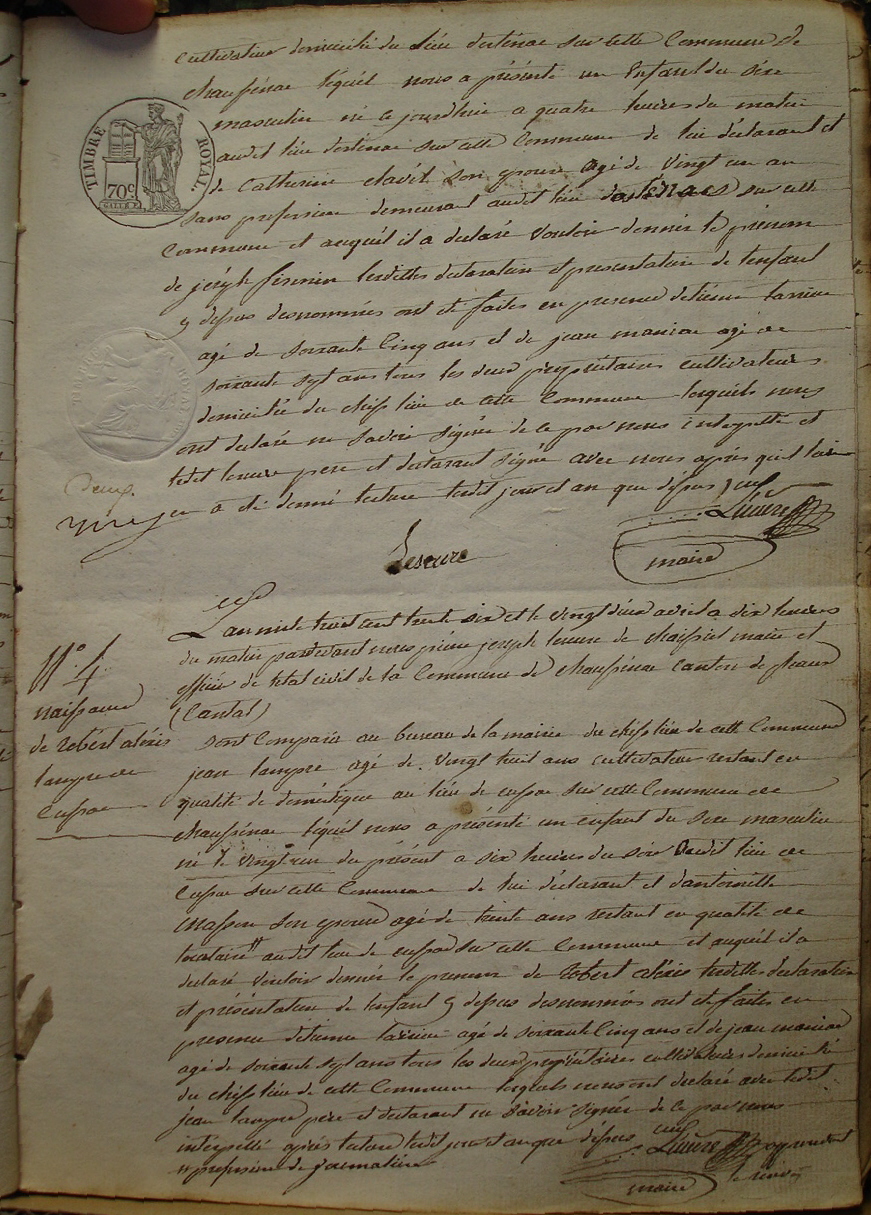 cultivateur domicilié du lieu desténac sur cette Commune de
chaussenac lequel nous a présenté un Enfant du séxe
masculin né ce jourdhuie a quatre heures du matin
audit lieu desténac sur cette Commune de lui déclarant et
de Catherine clavel son epouse agé de vingt un an
sans profession demeurant audit lieu desténac sur cette
Commune et auquel il a déclaré vouloir donner le prénom
de joseph firmin lesdittes déclaration et presentation de lenfant
y dessus desnommés ont été faites en presence detienne
agé de soixante Cinq ans et de jean maniac agé de
soixante sept ans tous les deux propriétaires cultivateurs
domicilié du cheff lieu de cette Commune lesquels nous
ont déclaré ne savoir signér de ce par nous interpellé et
ledit père et déclarant signé avec nous après quil
a été donné lecture ledit jour et an que dessus
maire
TIMBRE ROYAL
70c
Lan mile huit cent trente six et le vingt deux avril a dix heures
du matin pardevant nous pierre joseph de maire et
officier de letat civil de la Commune de chaussenac canton de pleaux
(Cantal)
N° 4
naissance
de robert aléxis
lampre de
Cussac
sont Comparu au bureau de la mairie du cheff lieu de cette Commune
jean lampre agé de vingt huit ans cultivateur restant en
qualité de doméstique au lieu de cussac sur cette Commune de
chaussenac lequel nous a présenté un enfant du sexe masculin
né le vingt un du présent a six heures du soir audit lieu de
Cussac sur cette Commune de lui déclarant et dantoinette
Masson son epouse agé de trente ans restant en qualité de
locataire audit lieu de cussac sur cette Commune et auquel il a
déclaré vouloir donner le prenom de robert aléxis lesdittes déclaration
et présentation de lenfant y dessus desnommés ont été faites en
presence detienne agé de soixante Cinq ans et de jean maniac
agé de soixante sept ans tous les deux propriétaires cultivateurs domicilié
du cheff lieu de cette Commune lesquels nous ont déclaré avec ledit
jean lampre père et déclarant ne savoir signér de ce par nous
interpellé après lecture ledit jour et an que dessus
profession de journalière
maire